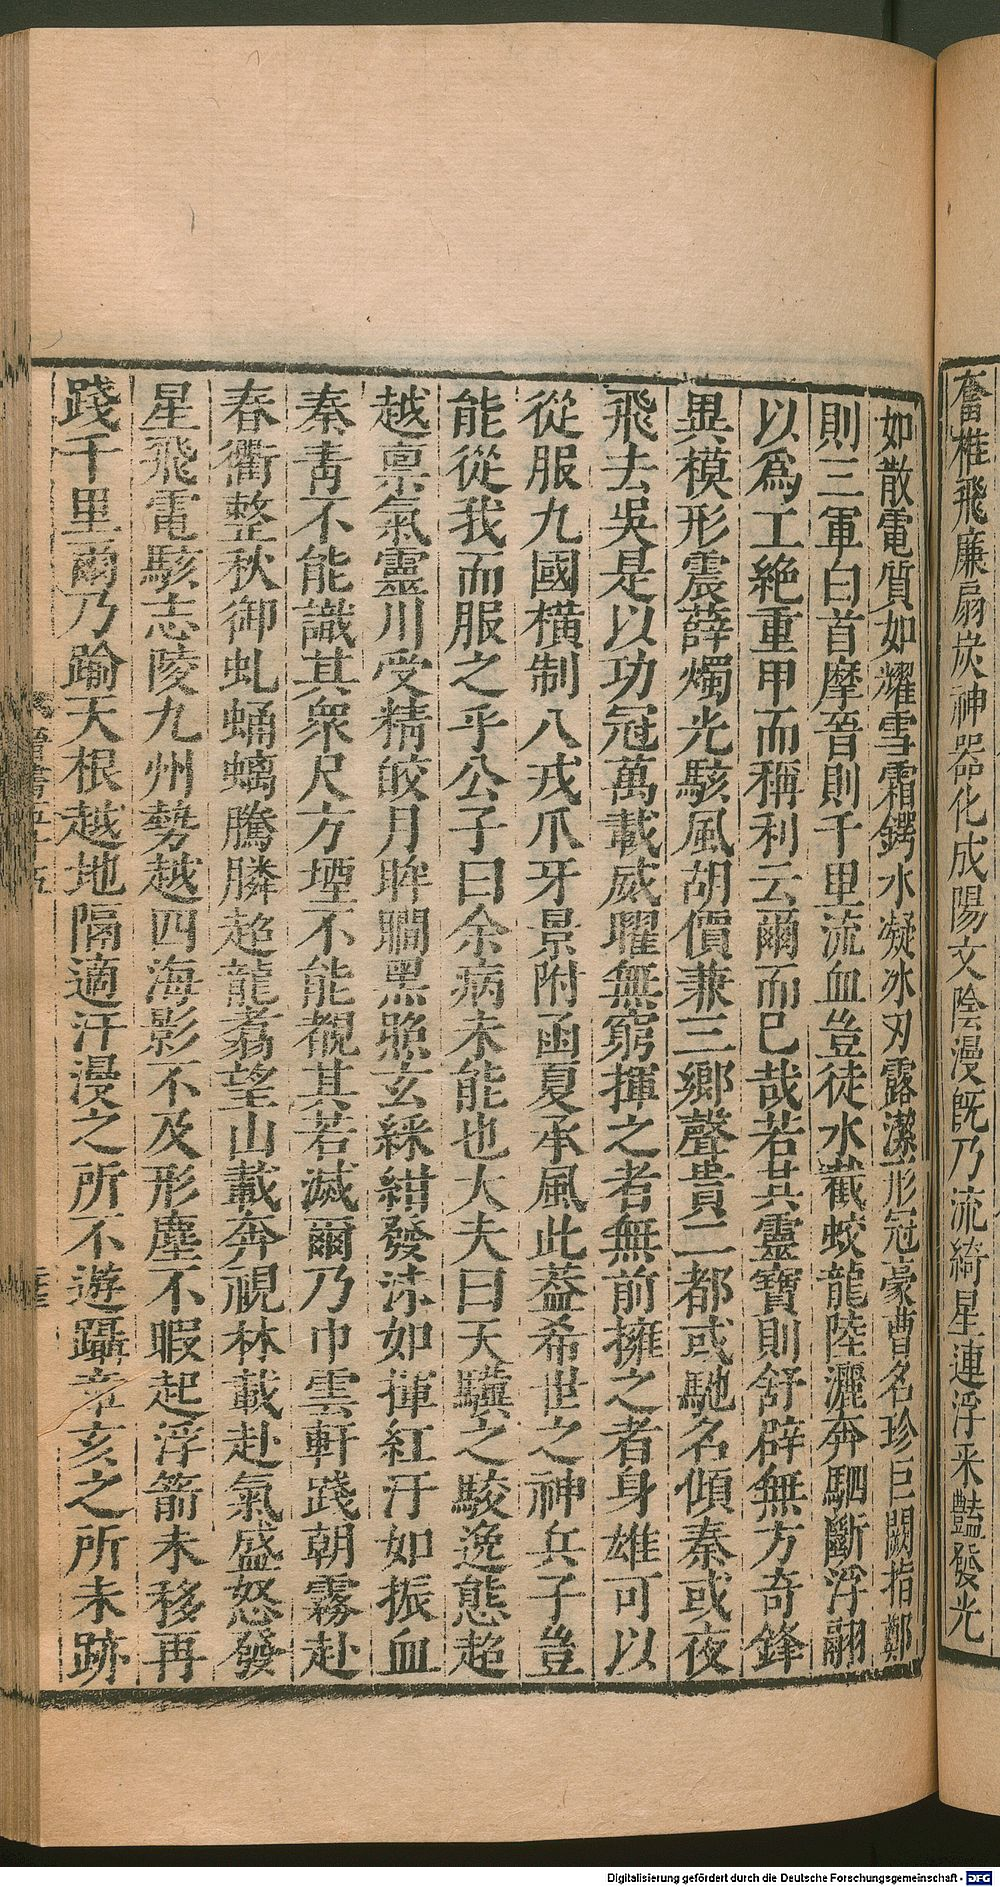 奮椎飛廉扇炭神器化成陽文陰漫既乃流綺星連浮采豔發光
如散電質如耀雪霜鍔水凝冰刃露潔形冠豪曹名珍巨闕指鄭
則三軍白首摩晉則千里流血豈徒水截蛟龍陸灑奔駟斷浮翮
以爲工絶重甲而稱利云爾而已哉若其靈寶則舒辟無方奇鋒
異模形震薛燭光駭風胡價兼三鄉聲貴二都或馳名傾秦或夜
飛去吳是以功冠萬載威曜無窮揮之者無前擁之者身雄可以
從服九國橫制八戎爪牙景附函夏承風此蓋希世之神兵子豈
能從我而服之乎公子曰余病未能也大夫曰天驥之駿逸態超
越禀氣靈川受精皎月眸𥈠黑照玄綵紺發沫如揮紅汗如振血
秦青不能識其衆尺方堙不能覩其若滅爾乃巾雲軒踐朝霧赴
春衢整秋御虬蛹螭騰麟超龍翥望山載奔視林載赴氣盛怒發
星飛電駭志陵九州勢越四海影不及形塵不暇起浮箭未移再
踐千里爾乃踰天根越地隔適汗漫之所不遊躡章亥之所未跡
晉書五十五
Digitalisierung gefördert durch die Deutsche Forschungsgemeinschaft - DFG